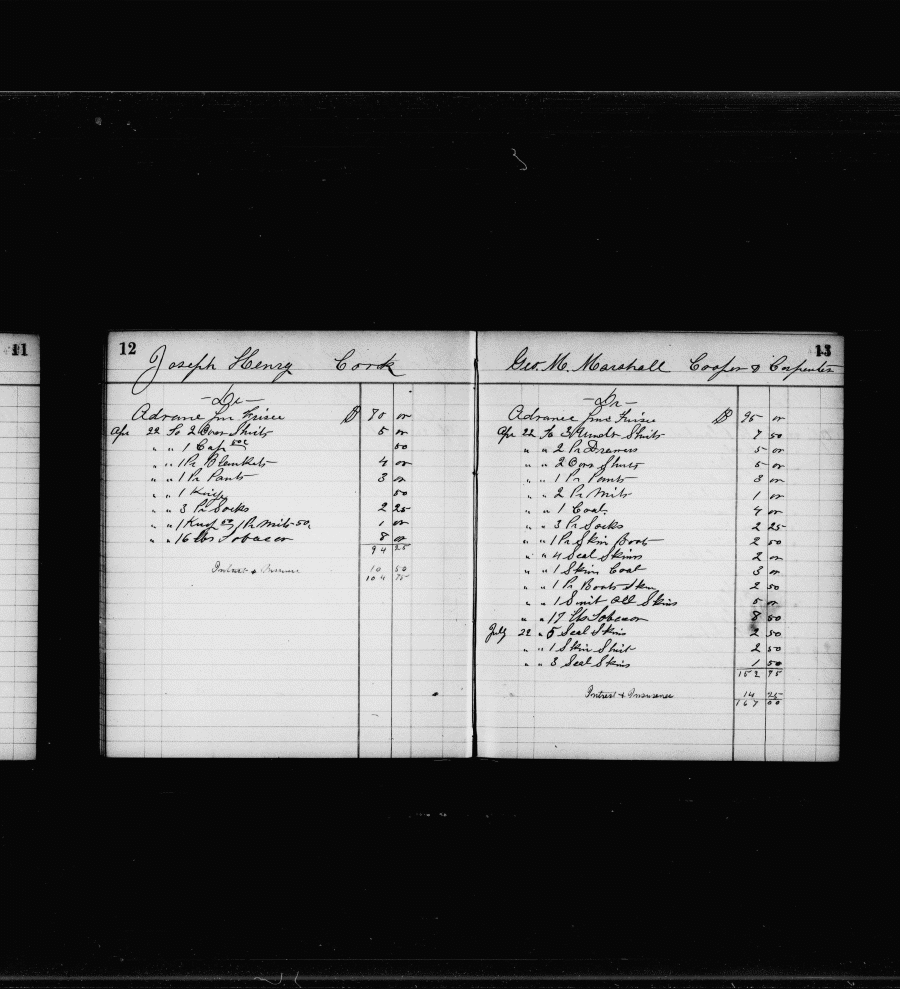 11
12
Joseph Henry Cook
- Dr -
Advance from Frisco $ 70 00
Apr 22 To 2 Over Shirts 5 00
" " 1 Cap 50c 50
" " 1 Pr Blankets 4 00
" " 1 Pr Pants 3 00
" " 1 Knife 50
" " 3 Pr Socks 2 25
" " 1 Knife 50 1 Pr Mits 50 1 00
" " 16 lbs Tobacco 8 00
94 25
Intrest & Insurance 10 50
104 75
13
Geo. M. Marshall Cooper & Carpenter
- Dr -
Advance from Frisco $ 95 00
Apr 22 To 3 Under Shirts 7 50
" " 2 Pr Drawers 5 00
" " 2 Over Shirts 5 00
" " 1 Pr Pants 3 00
" " 2 Pr Mits 1 00
" " 1 Coat 4 00
" " 3 Pr Socks 2 25
" " 1 Pr Skin Boots 2 50
" " 4 Seal Skins 2 00
" " 1 Skin Coat 3 00
" " 1 Pr Boots Skin 2 50
" " 1 Suit Skins 5 00
" " 17 lbs Tobacco 8 50
July 22 " 5 Seal Skins 2 50
" " 1 Skin Shirt 2 50
" " 3 Seal Skins 1 50
152 75
Intrest & Insurance 14 25
167 00